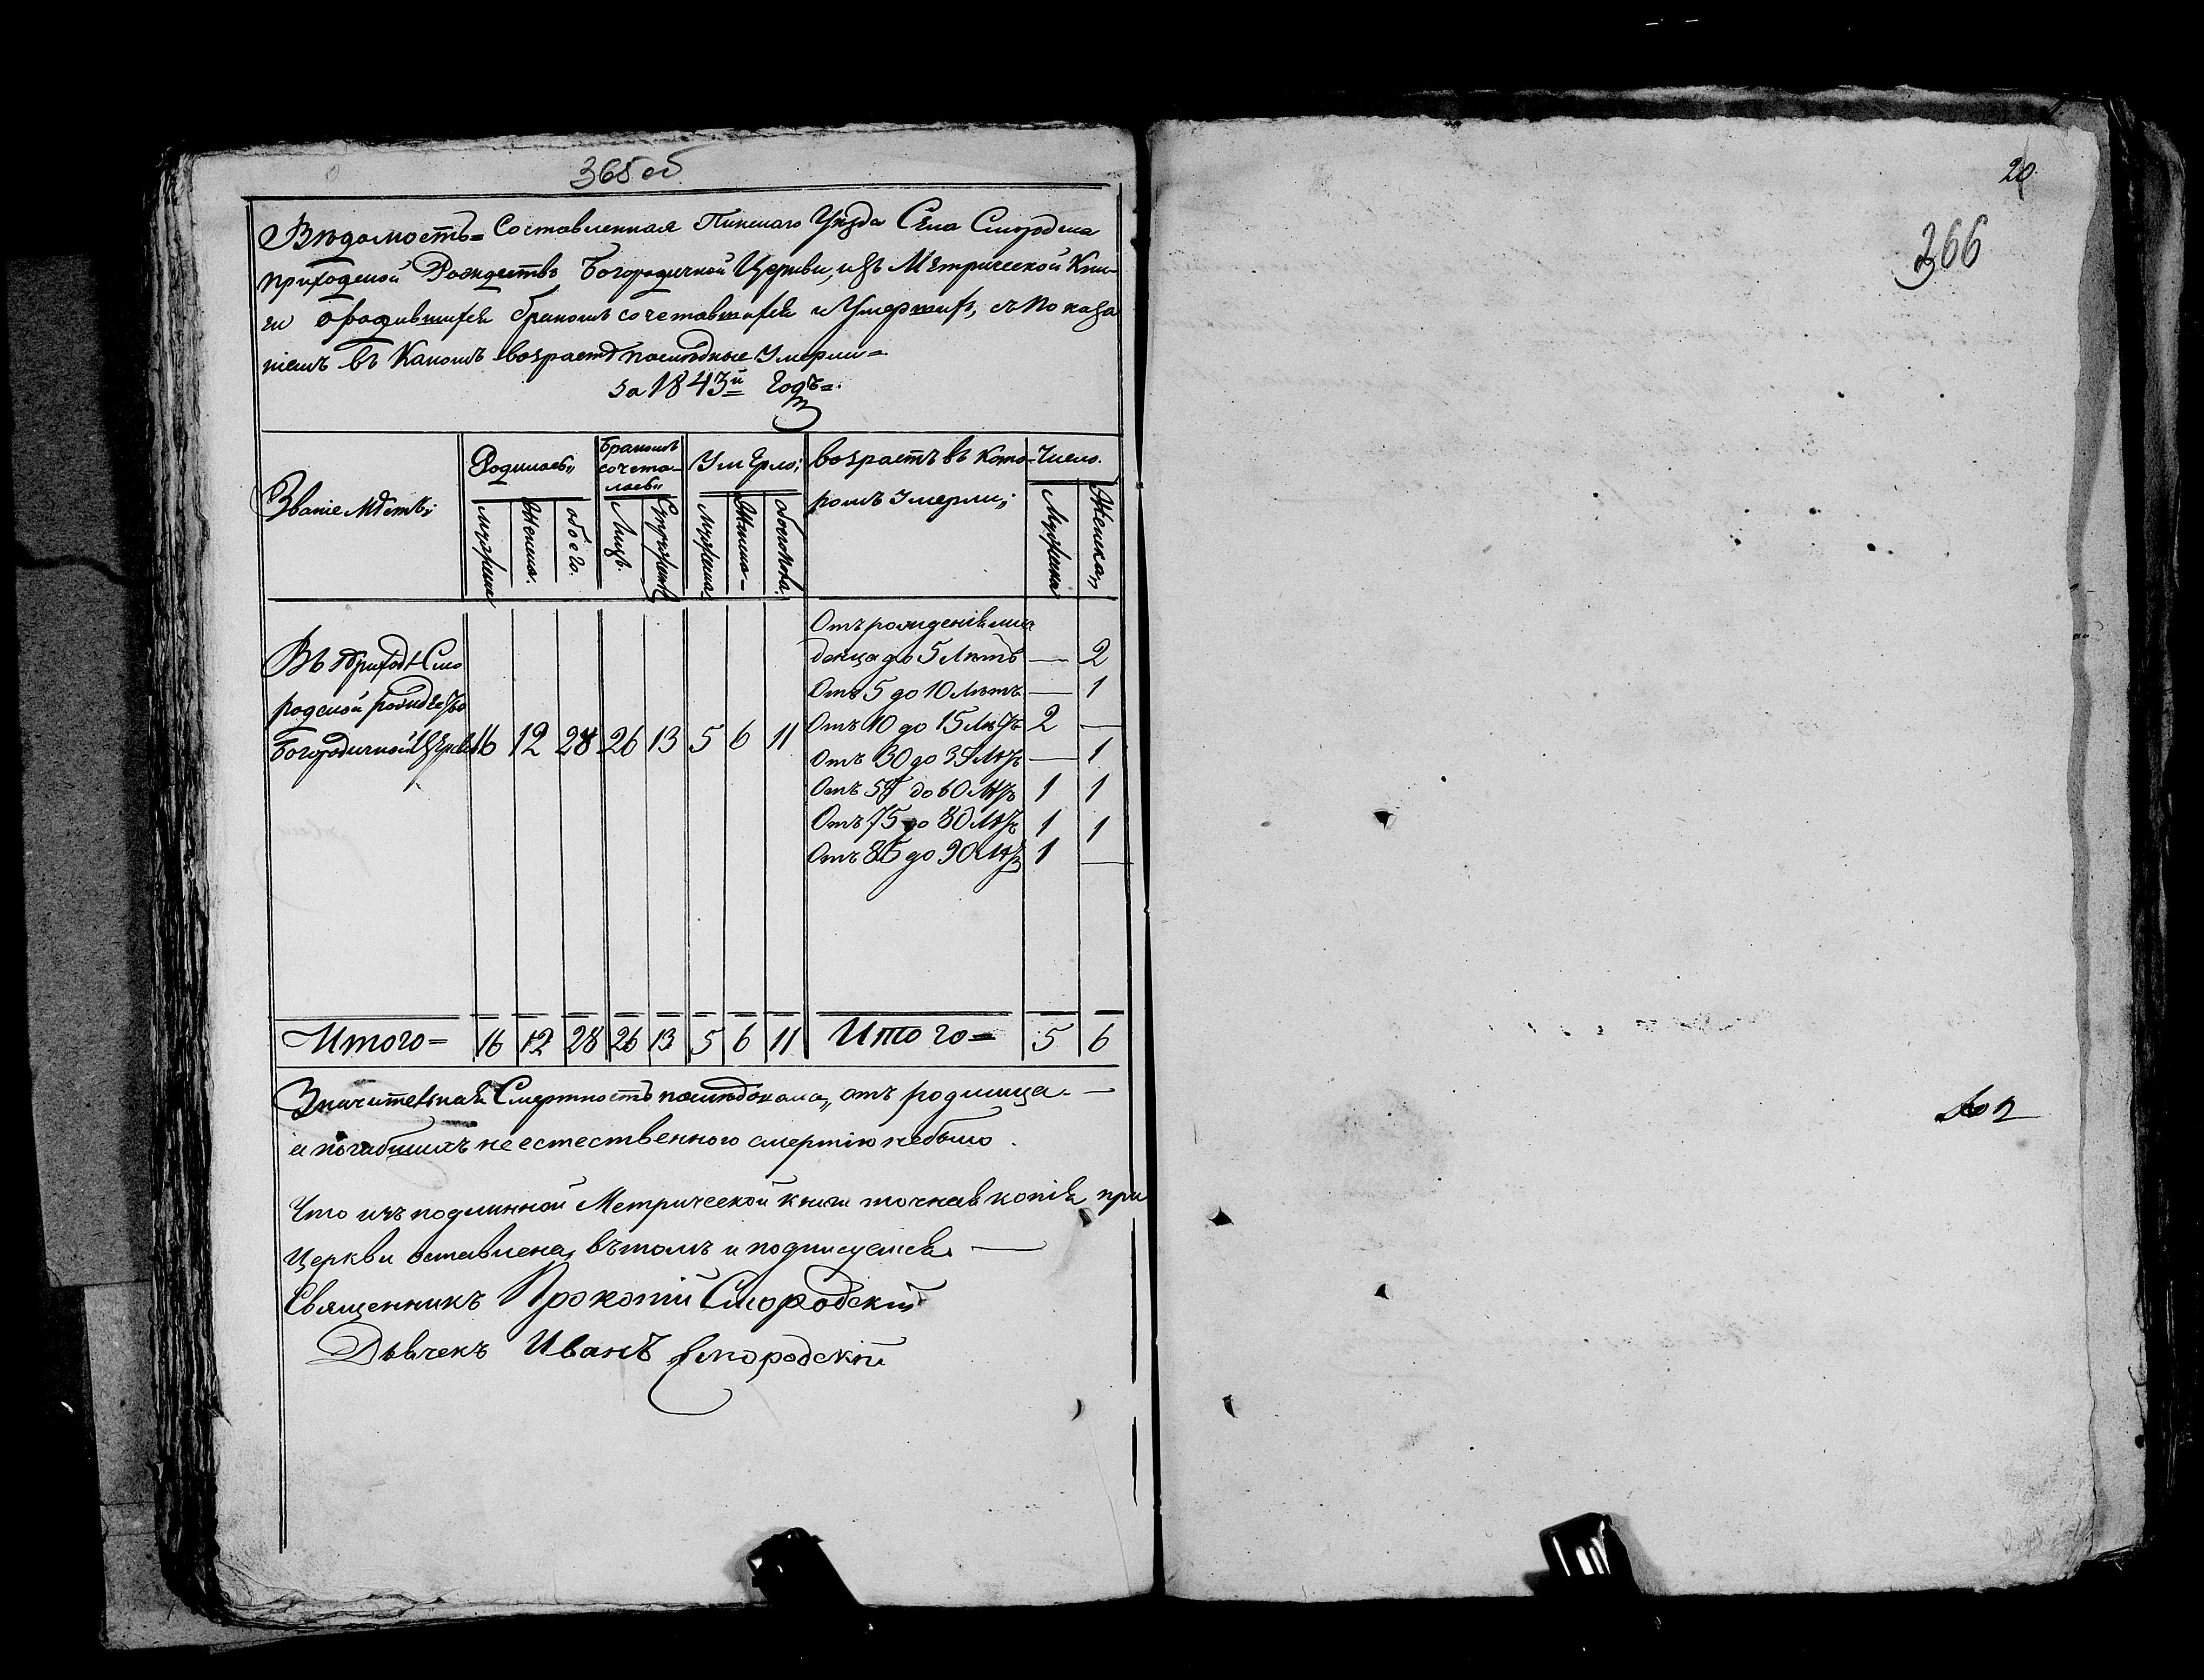 365 об
Вѣдомость= Составленная Пинскаго Уѣзда Села Смордска
приходской Рождество Богородичной Церкви, изъ Метрической Кни-
ги о родившихся бракомъ сочетавшихся и Умершихъ, съ показа
ніемъ въ Какомъ возрастѣ послѣдные Умерли=
за 1843й Годъ=.
Званіе мѣстъ;
Родилось
Бракомъ сочета-лось
УмЕрло;
возрастъ въ кото-
ромъ умерли;
Число.
мужеска
Женска.
обоего.
Лицъ.
Супружествъ
мужеска
Женска-
обоегопола.
Мужеска
Женска,
Въ Приходѣ Смо
родской рождество
Богородичной Церкви 16 12 28 26 13 5 6 11
Отъ рожденія мла
денца до 5 Лѣтъ — 2
Отъ 5 до 10 Лѣтъ — 1
Отъ 10 до 15 Лѣтъ 2 —
Отъ 30 до 35 Лѣтъ — 1
Отъ 55 до 60 Лѣтъ 1 1
Отъ 75 до 80 Лѣтъ 1 1
Отъ 85 до 90 Лѣтъ 1 —
Итого= 16 12 28 26 13 5 6 11 Итого= 5 6
Значительная Смертность послѣдовала, отъ родимца. —
и погибшихъ неестественного смертію небыло.
Что изъ подлинной Метрической книги точная копія при
Церкви оставлена, въ томъ и подписуемся. —
Священникъ Прокопій Смородскій
Дьячекъ Иванъ Смородскій
20
366